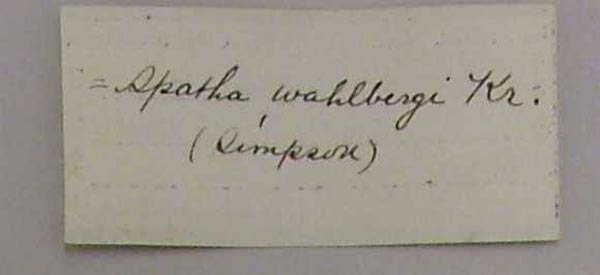 = Spatha wahlbergi Kr.
(Simpson)